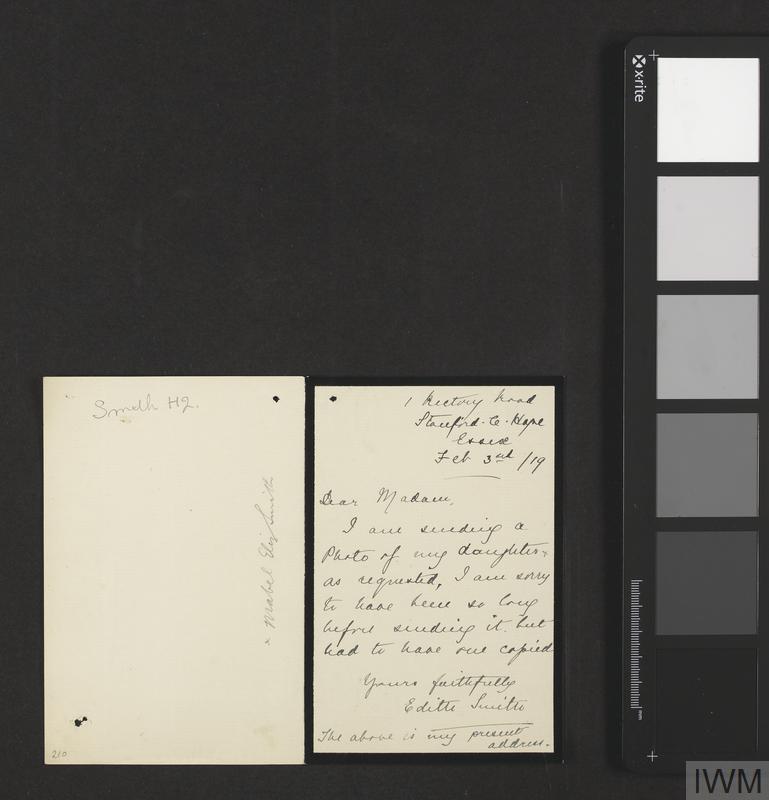 Smith H2.
x Mabel Eliz Smith
210
1 Rectory Road
Stanford-le-Hope
Essex
Feb 3rd /19
Dear Madam,
I am sending a
Photo of my daughter x
as requested, I am sorry
to have been so long
before sending it. but
had to have one copied
Yours faithfully
Edith Smith
The above is my present
address.
x-rite
mm
IWM